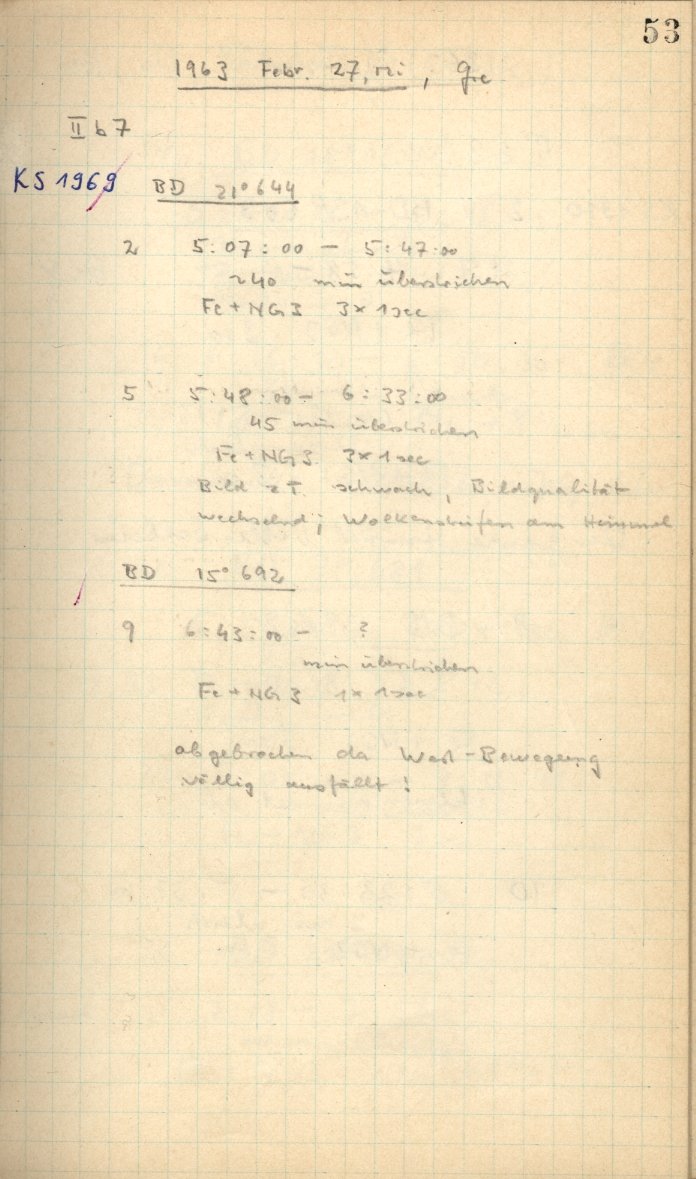 53
1963 Febr. 27, rzi, Gre
II b 7
KS 1969 BD 21°644
2 5:07:00 - 5:47:00
~40 min überstrichen
Fe + NG3 3x1sec
5 5:48:00 - 6:33:00
45 min überstrichen
Fe + NG3 3x1sec
Bild z T. schwach, Bildqualität
wechselnd; Wolkenstreifen am Himmel
BD 15°692
9 6:43:00 - ?
min überstrichen
Fe + NG3 1x1sec
abgebrochen da West-Bewegung
völlig ausfällt!